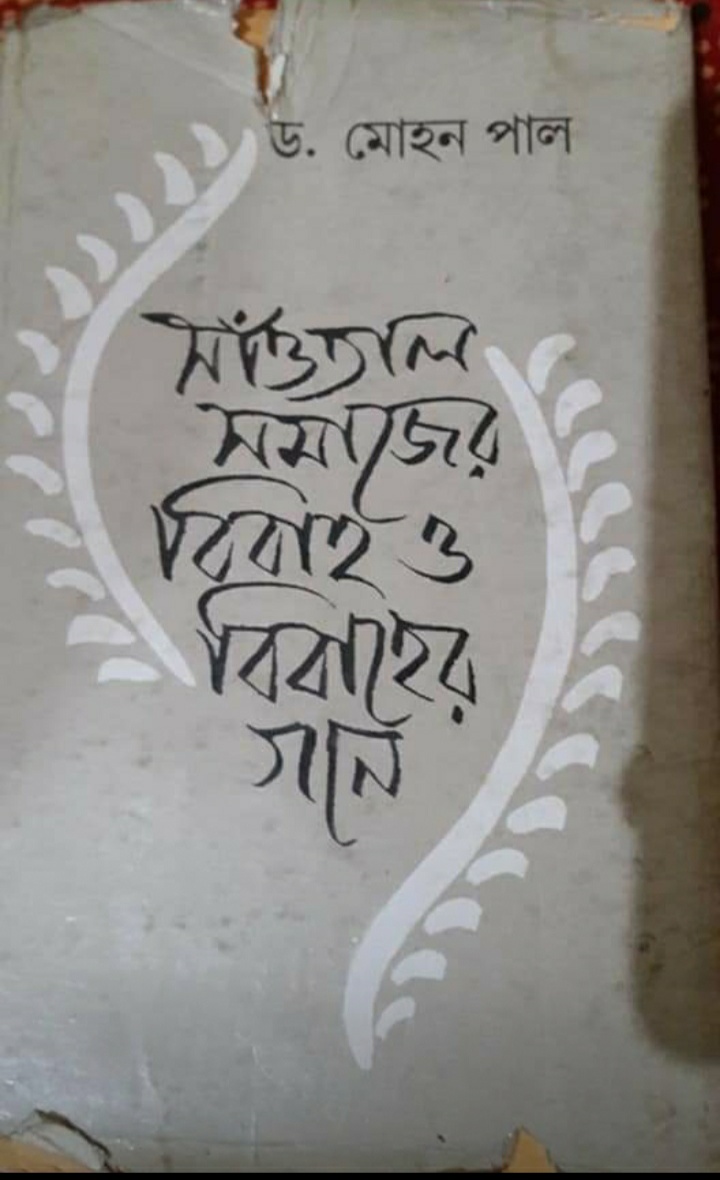 ড. মোহন পাল
সাঁওতাল
সমাজের
বিবাহ ও
বিবাহের
গান